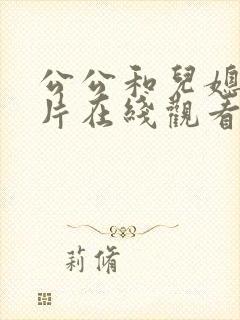 公公和兒媳
片在綫觀看
莉脩